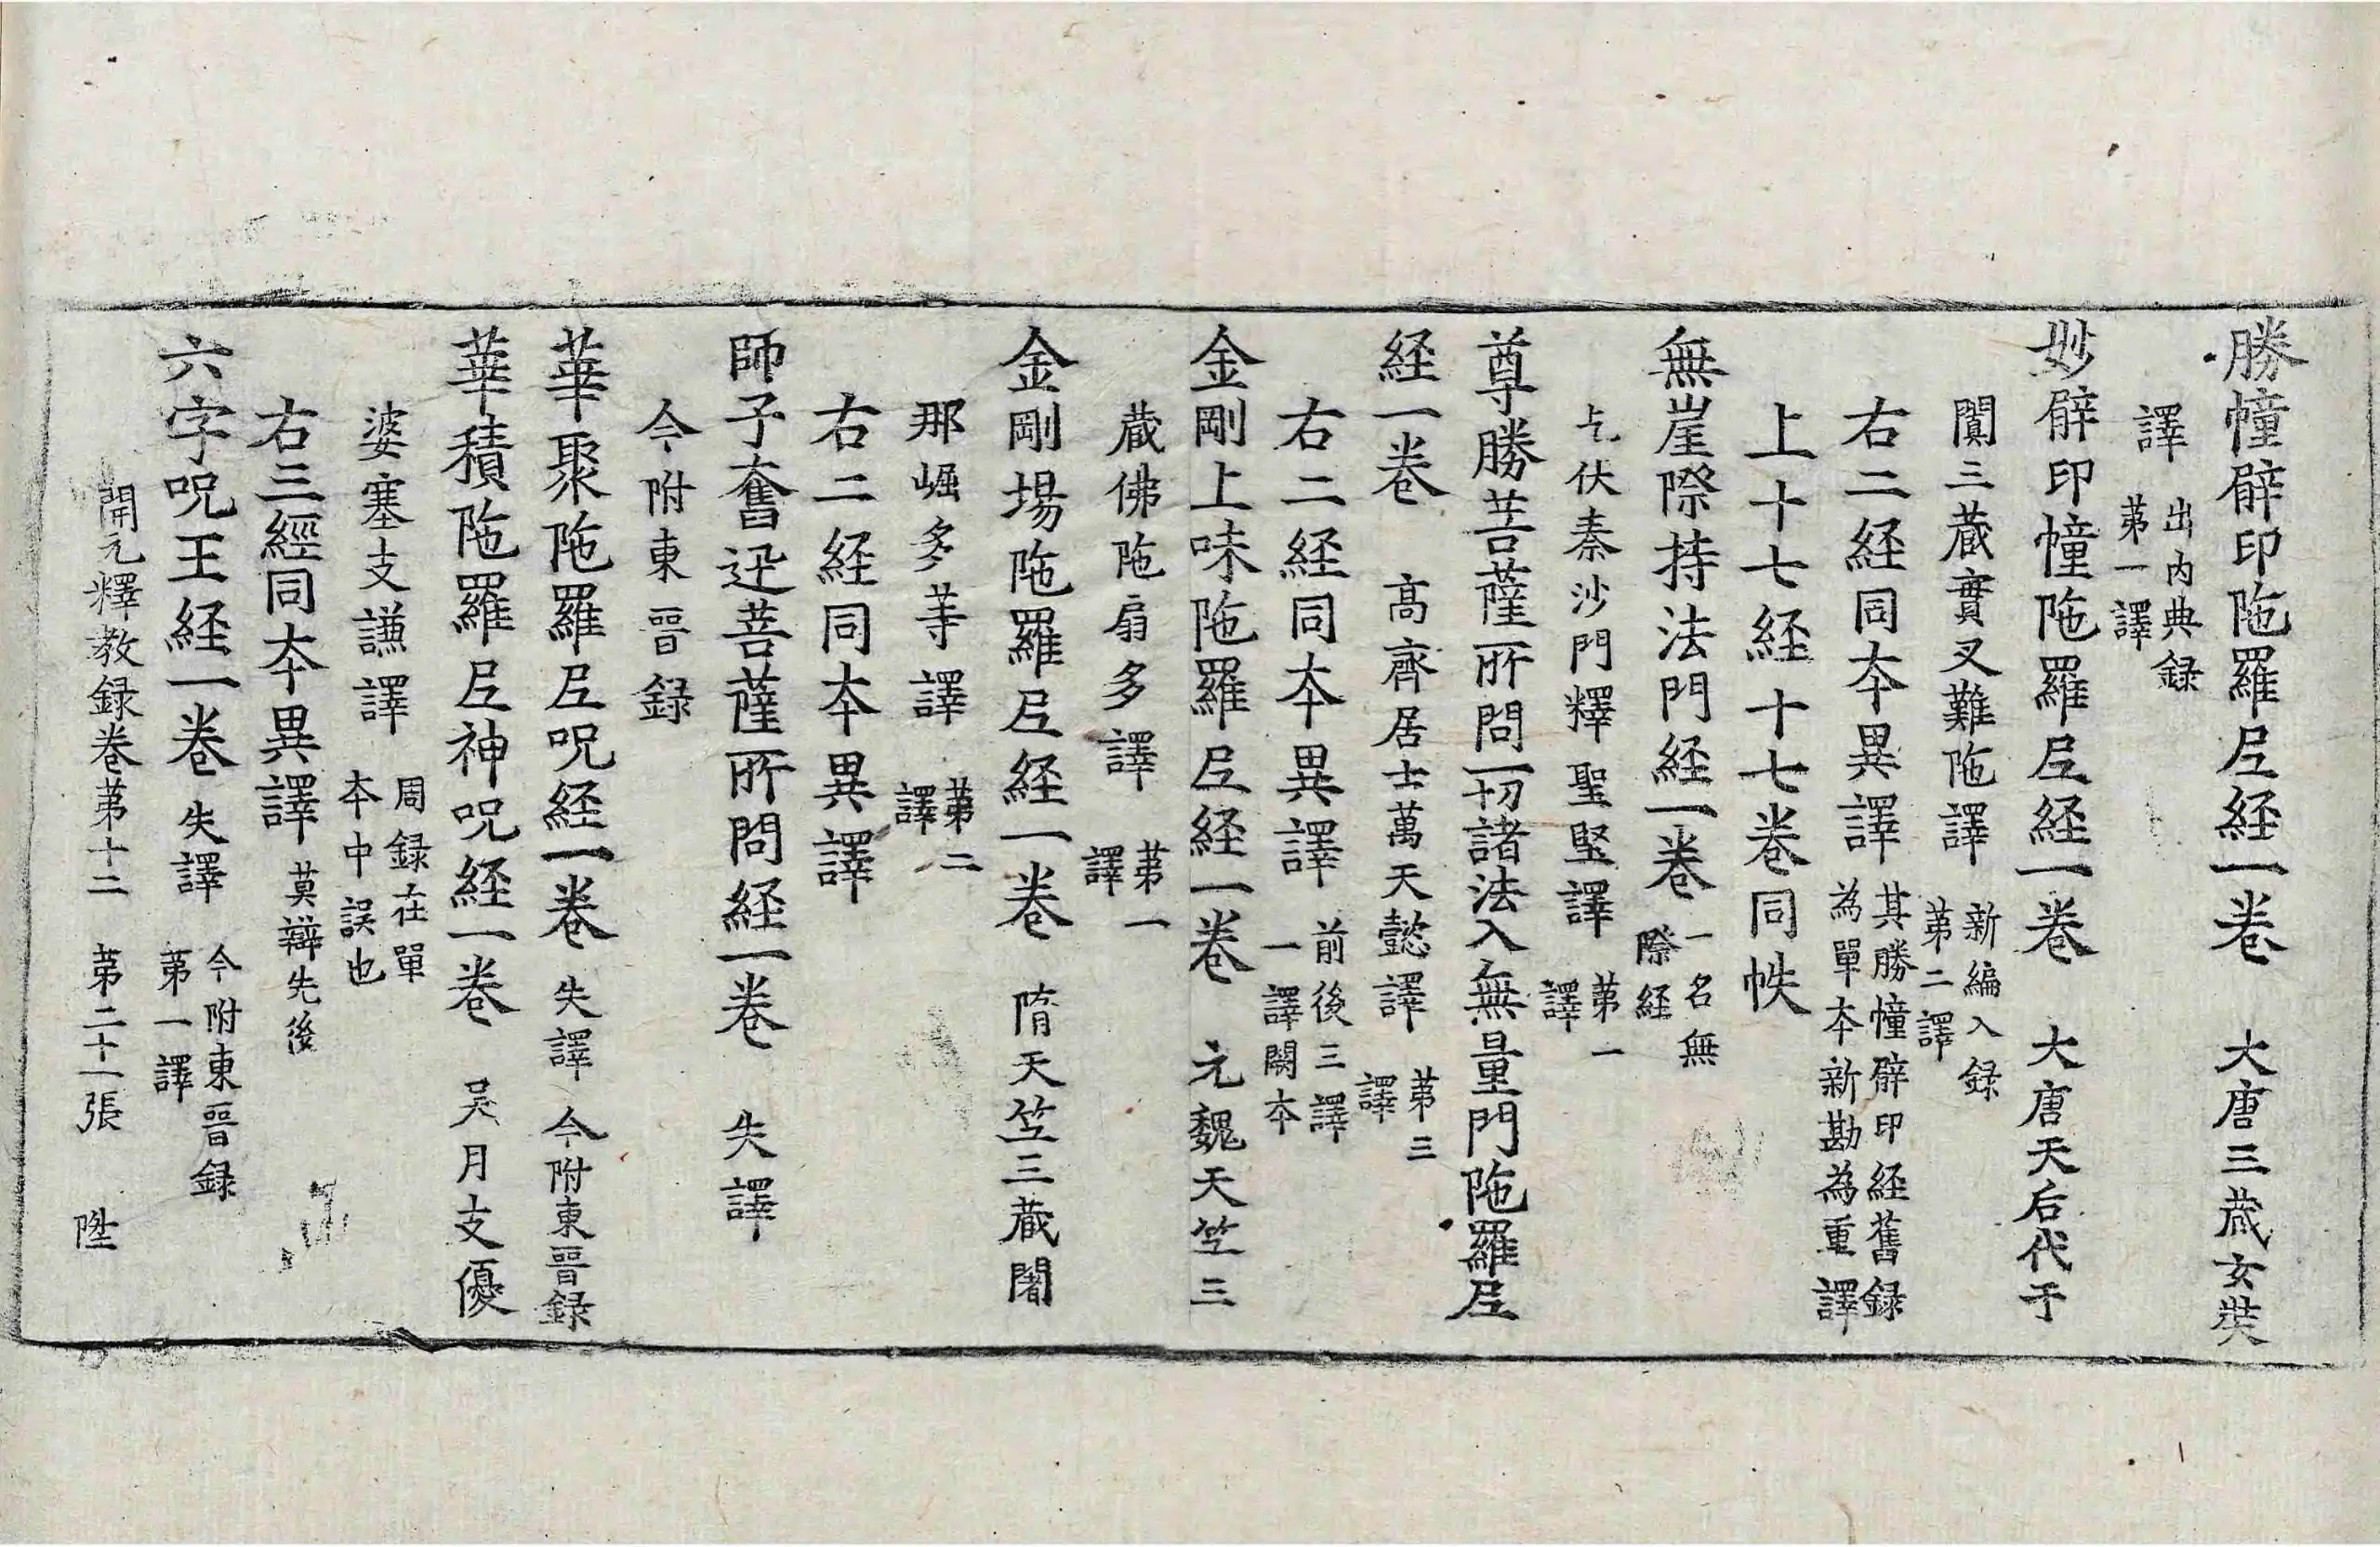 勝幢臂印陁羅尼経一巻 大唐三蔵玄奘
譯 出内典録第一譯
妙臂印幢陁羅尼経一巻 大唐天后代于
闐三蔵實叉難陁譯 新編入録第二譯
右二経同夲異譯 其勝幢臂印経舊録為單夲新勘為重譯
上十七経十七巻同帙
無崖際持法門経一巻 一名無際経
乞伏秦沙門釋聖堅譯 苐一譯
尊勝菩薩所問一切諸法入無量門陁羅尼
経一巻 高齊居士萬天懿譯 苐三譯
右二経同夲異譯 前後三譯一譯闕夲
金剛上味陁羅尼経一巻 元魏天竺三
蔵佛陁扇多譯 苐一譯
金剛場陁羅尼経一巻 隋天竺三蔵闍
那崛多等譯 苐二譯
右二経同夲異譯
師子奮迅菩薩所問経一巻 失譯
今附東晉録
華聚陁羅尼呪経一巻 失譯 今附東晉録
華積陁羅尼神呪経一巻 吴月支優
婆塞支謙譯 周録在單夲中誤也
右三經同夲異譯 莫辯先後
六字呪王経一巻 失譯 今附東晉録苐一譯
開元釋教録巻苐十二 苐二十一張 陞